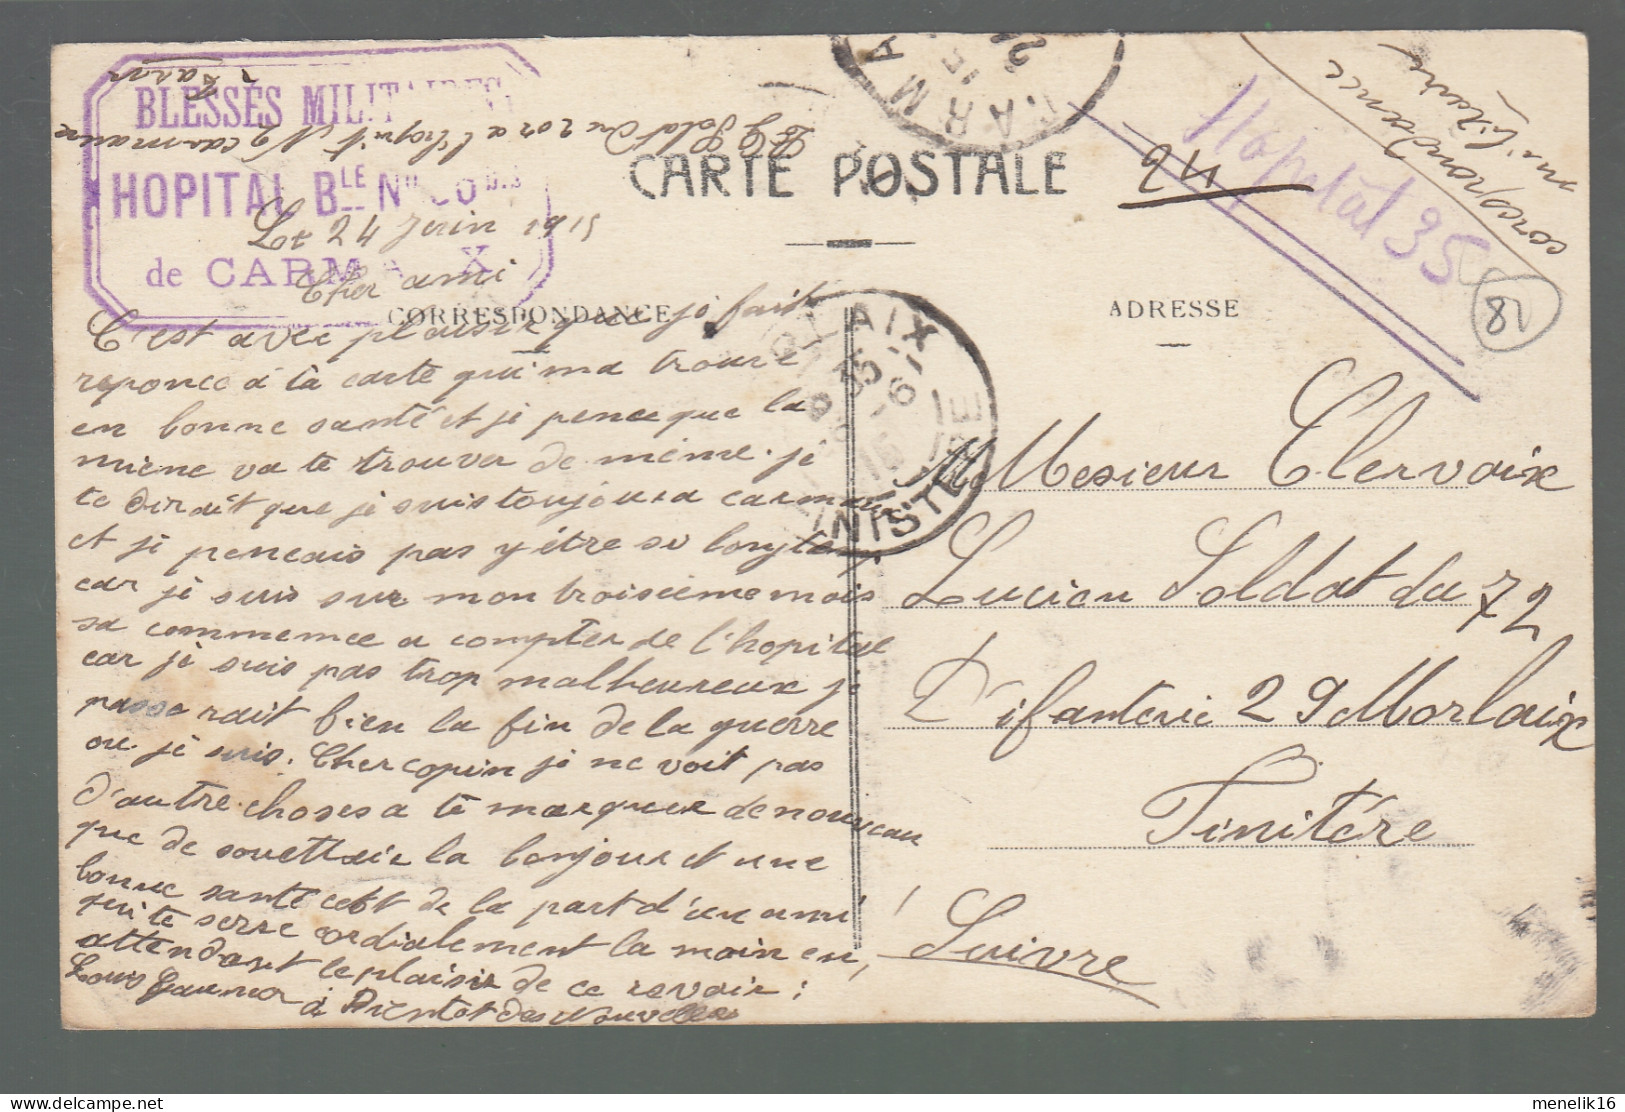 BLESSÉS MILITAIRES
HOPITAL BLE No
de CARMAUX
CARTE POSTALE
CORRESPONDANCE
ADRESSE
Le 24 juin 1915
Cher ami
C'est avec plaisir que je fait
reponce a ta carte qui ma trouve
en bonne santé et je pence que la
miene va te trouver de même. je
te dirait que je suis toujours a carmaux
et je pencais pas y être si longte
car je suis sur mon troisieme mois
sa commence a compter de l'hopital
car je suis pas trop malheureux je
passe rait bien la fin de la guerre
ou je suis. Cher copin je ne voit pas
d'autre choses a te marquer de nouveau
que de souettaie la bonjour et une
bonne santé cest de la part d'un ami
qui te serre cordialement la main en
attendant le plaisir de ce revoir :
Louis
à Bientot des Nouvelles
Soldat du 202 a l'hopit No carmaux
Tarn
CARMA
15
LAIX
FINISTE
214
Hopital 35
correspondance
militaire
81
M Mesieur Clervoix
Lucien Soldat du 72
D'ifanterie 29 Morlaix
Finitére
Suivre
delcampe.net
menelik16